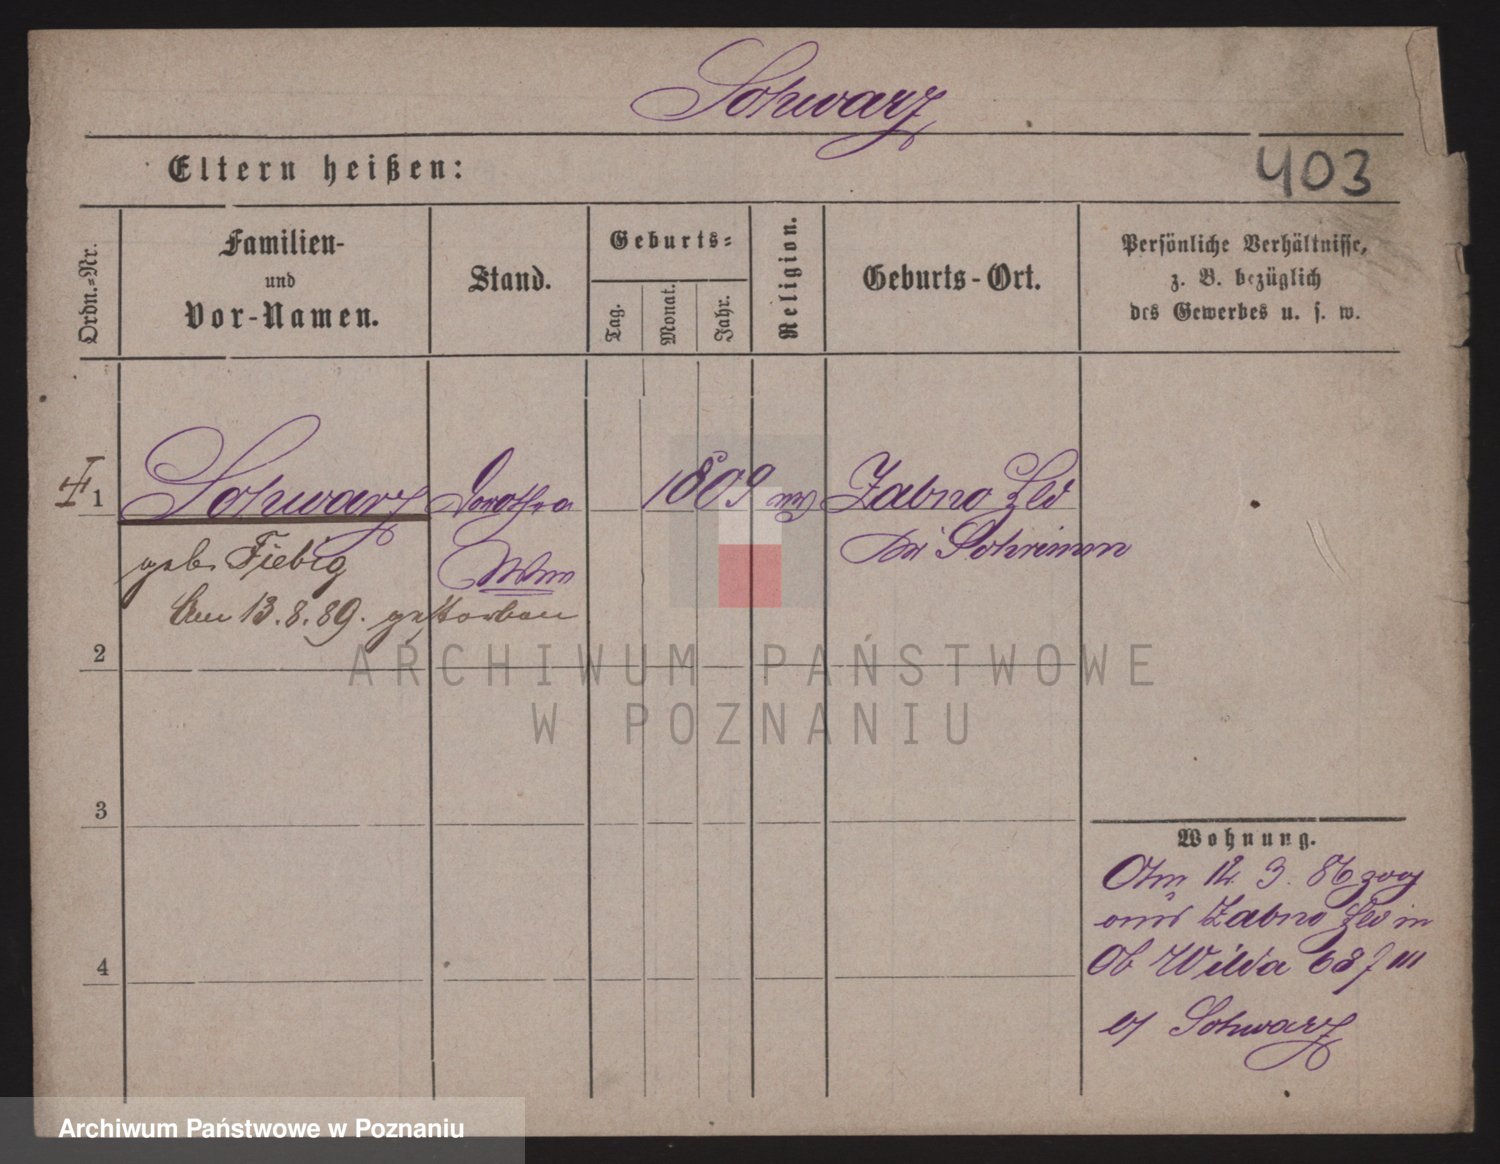 Schwarz
Eltern heißen:
403
Ordn.-Nr.
Familien-
und
Vor-Namen.
Stand.
Geburts-
Tag.
Monat.
Jahr.
Religion.
Geburts-Ort.
Persönliche Verhältnisse,
z. B. bezüglich
des Gewerbes u. s. w.
1
Schwarz Dorothea 1809 Zabno
geb. Fiebig Schrimm
Am 13.8.89. gestorben
2
ARCHIWUM PAŃSTWOWE
W POZNANIU
3
Wohnung.
Am 12. 3. 86 zog
aus Zabno in
Ob Wilda
b/ Schwarz
4
Archiwum Państwowe w Poznaniu